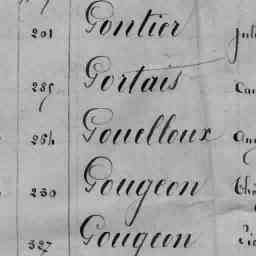 201 Gontier
285 Gortais
254 Gouelloux
230 Gougeon
327 Gougeon